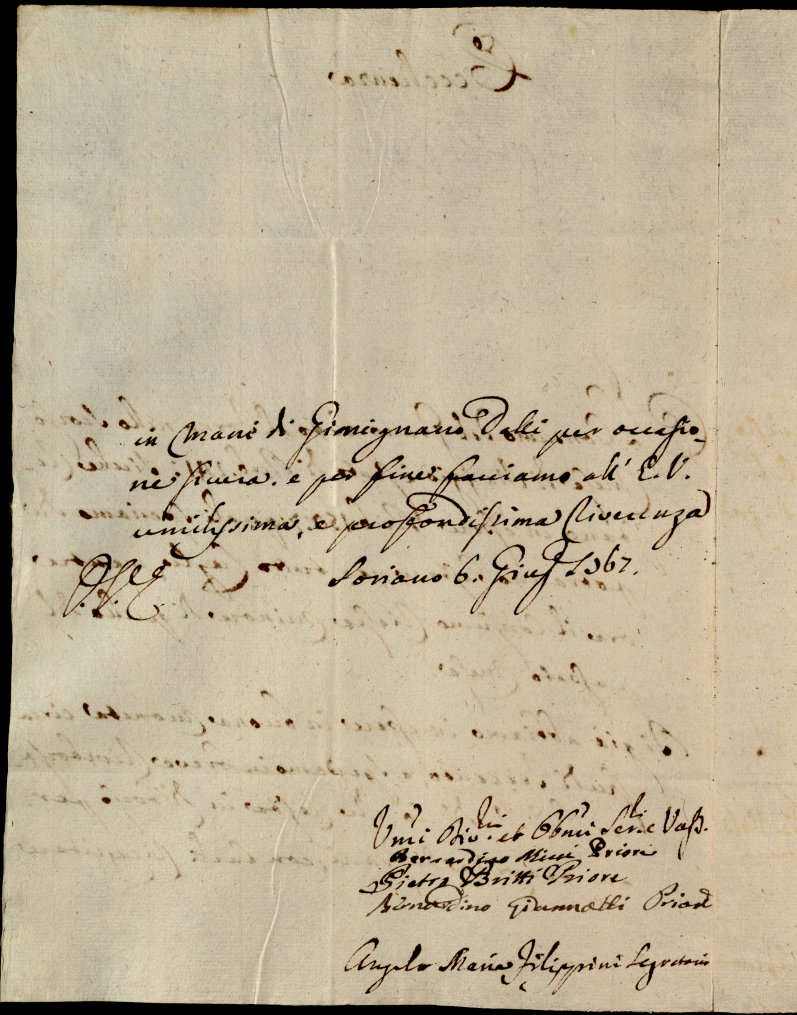 in mani di Gimignano Dalli per occasio-
ne sicura. e per fine facciamo all' E. V.
umilissima, e profondissima riverenza
Soriano 6. Giug 1767.
Umi et Obbmi Vass.
Bernardino Mici Priore
Pietro Britti Priore
Bernardino Giannotti Priore
Angelo Maria Filippini Segretario